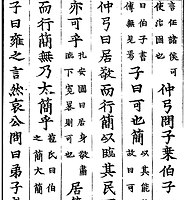 言任諸侯可
使治國也
仲弓問子桑伯
曰伯子書
傳無見焉
子曰可也簡
以其能
故曰可
仲弓曰居敬而行簡以臨其民
亦可乎
孔安國曰居身敬肅
臨下寬畧則可也
居
而行簡無乃太簡乎
包氏曰伯
之簡太簡
子曰雍之言然哀公問曰弟子